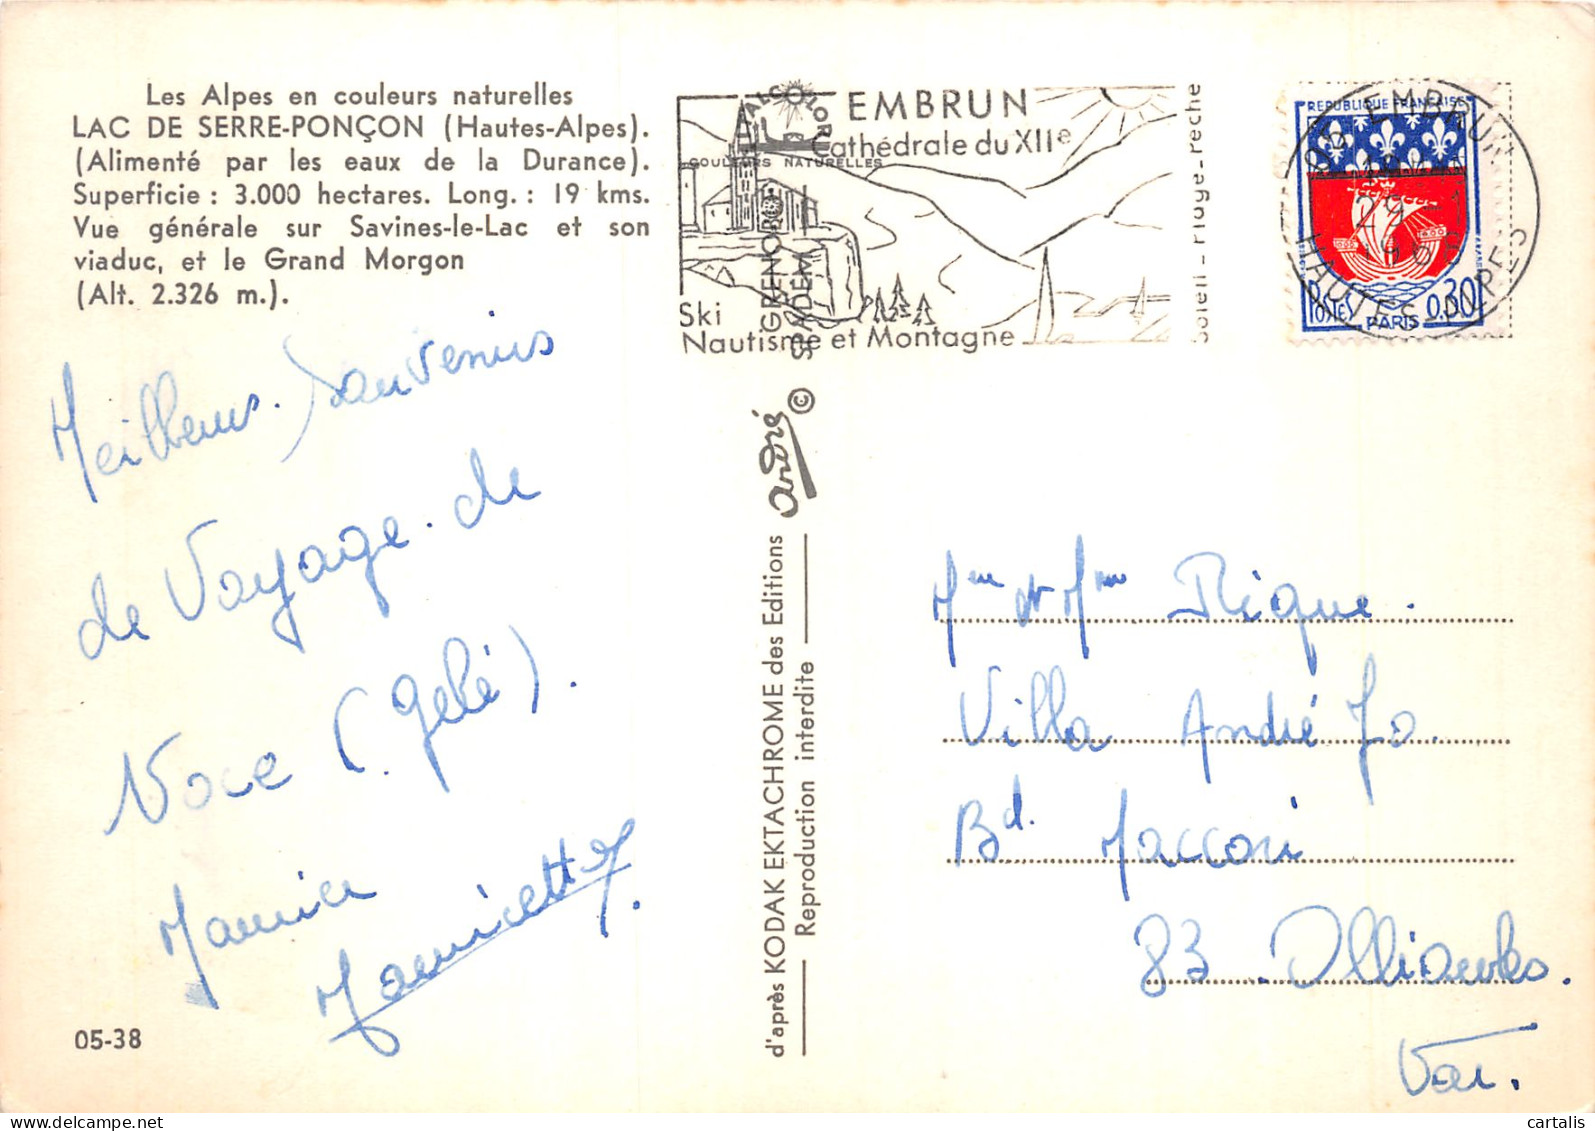 Les Alpes en couleurs naturelles
LAC DE SERRE-PONÇON (Hautes-Alpes).
(Alimenté par les eaux de la Durance).
Superficie : 3.000 hectares. Long. : 19 kms.
Vue générale sur Savines-le-Lac et son
viaduc, et le Grand Morgon
(Alt. 2.326 m.).
Meilleurs Souvenirs
de Voyage de
Noce (Gelé).
Mauricette M.
05-38
EMBRUN
Cathédrale du XIIe
COULEURS NATURELLES
Ski
Nautisme et Montagne
Soleil - Plage - Pêche
GRENOBLE
SPADEM
André ©
d'après KODAK EKTACHROME des Editions
Reproduction interdite
REPUBLIQUE FRANÇAISE
POSTES
PARIS
0,30
05 EMBRUN
HAUTES-ALPES
Villa André Jo.
Bd.
83 Ollioules.
Var.
cartalis | delcampe.net